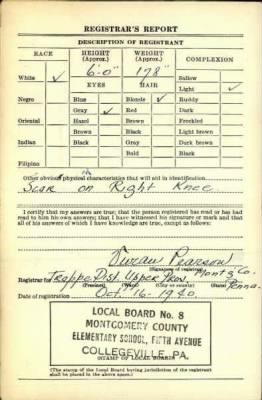 REGISTRAR'S REPORT
DESCRIPTION OF REGISTRANT
RACE HEIGHT (Approx.) WEIGHT (Approx.) COMPLEXION
White ✓ 6-0" 178# Sallow
EYES HAIR Light ✓
Negro Blue Blonde ✓ Ruddy
Gray ✓ Red Dark
Oriental Hazel Brown Freckled
Brown Black Light brown
Indian Black Gray Dark brown
Bald Black
Filipino
Other obvious physical characteristics that will aid in identification
Scar on Right Knee
I certify that my answers are true; that the person registered has read or has had
read to him his own answers; that I have witnessed his signature or mark and that
all of his answers of which I have knowledge are true, except as follows:
Pearson
(Signature of registrar)
Registrar for Trappe Dist. Upper Prov. Montg Co. Penna.
(Precinct) (Ward) (City or county) (State)
Date of registration Oct. 16-1940.
LOCAL BOARD No. 8
MONTGOMERY COUNTY
ELEMENTARY SCHOOL, FIFTH AVENUE
COLLEGEVILLE, PA.
(STAMP OF LOCAL BOARD)
(The stamp of the Local Board having jurisdiction of the registrant
shall be placed in the above space.)